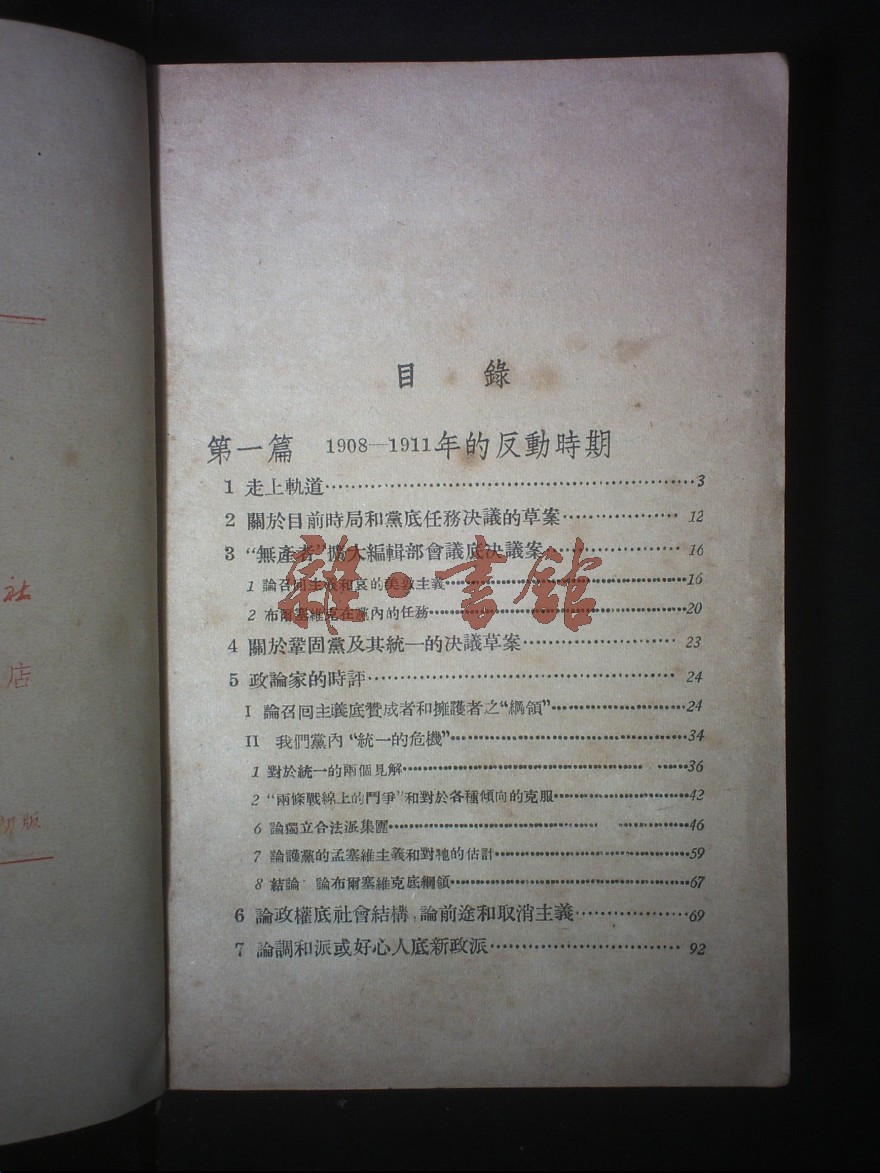 社
店
初版
目 錄
第一篇 1908—1911年的反動時期
1 走上軌道 3
2 關於目前時局和黨底任務決議的草案 12
3 “無產者”擴大編輯部會議底決議案 16
1 論召回主義和哀的美敦主義 16
2 布爾塞維克在黨內的任務 20
4 關於鞏固黨及其統一的決議草案 23
5 政論家的時評 24
I 論召回主義底贊成者和擁護者之“綱領” 24
II 我們黨內“統一的危機” 34
1 對於統一的兩個見解 36
2 “兩條戰線上的鬥爭”和對於各種傾向的克服 42
6 論獨立合法派集團 46
7 論護黨的孟塞維主義和對牠的估計 59
8 結論 論布爾塞維克底綱領 67
6 論政權底社會結構，論前途和取消主義 69
7 論調和派或好心人底新政派 92
雜·書館